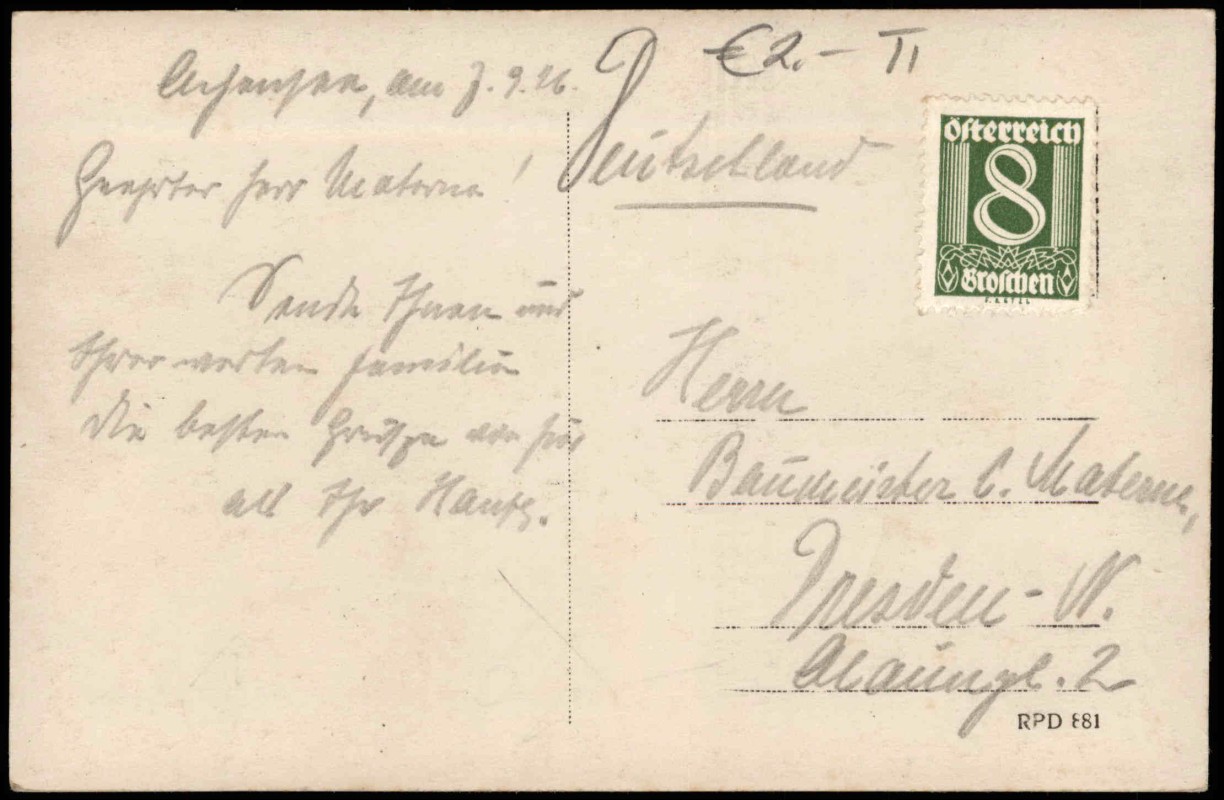 Achensee, am 7. 9. 26.
Geehrter Herr Materne!
Sende Ihnen und
Ihrer werten Familie
die besten Grüsse von hier
als Ihr
€2.– II
Deutschland
Österreich
8
Groschen
Herrn
Baumeister C. Materne,
Dresden-N.
Alaunpl. 2
RPD 881